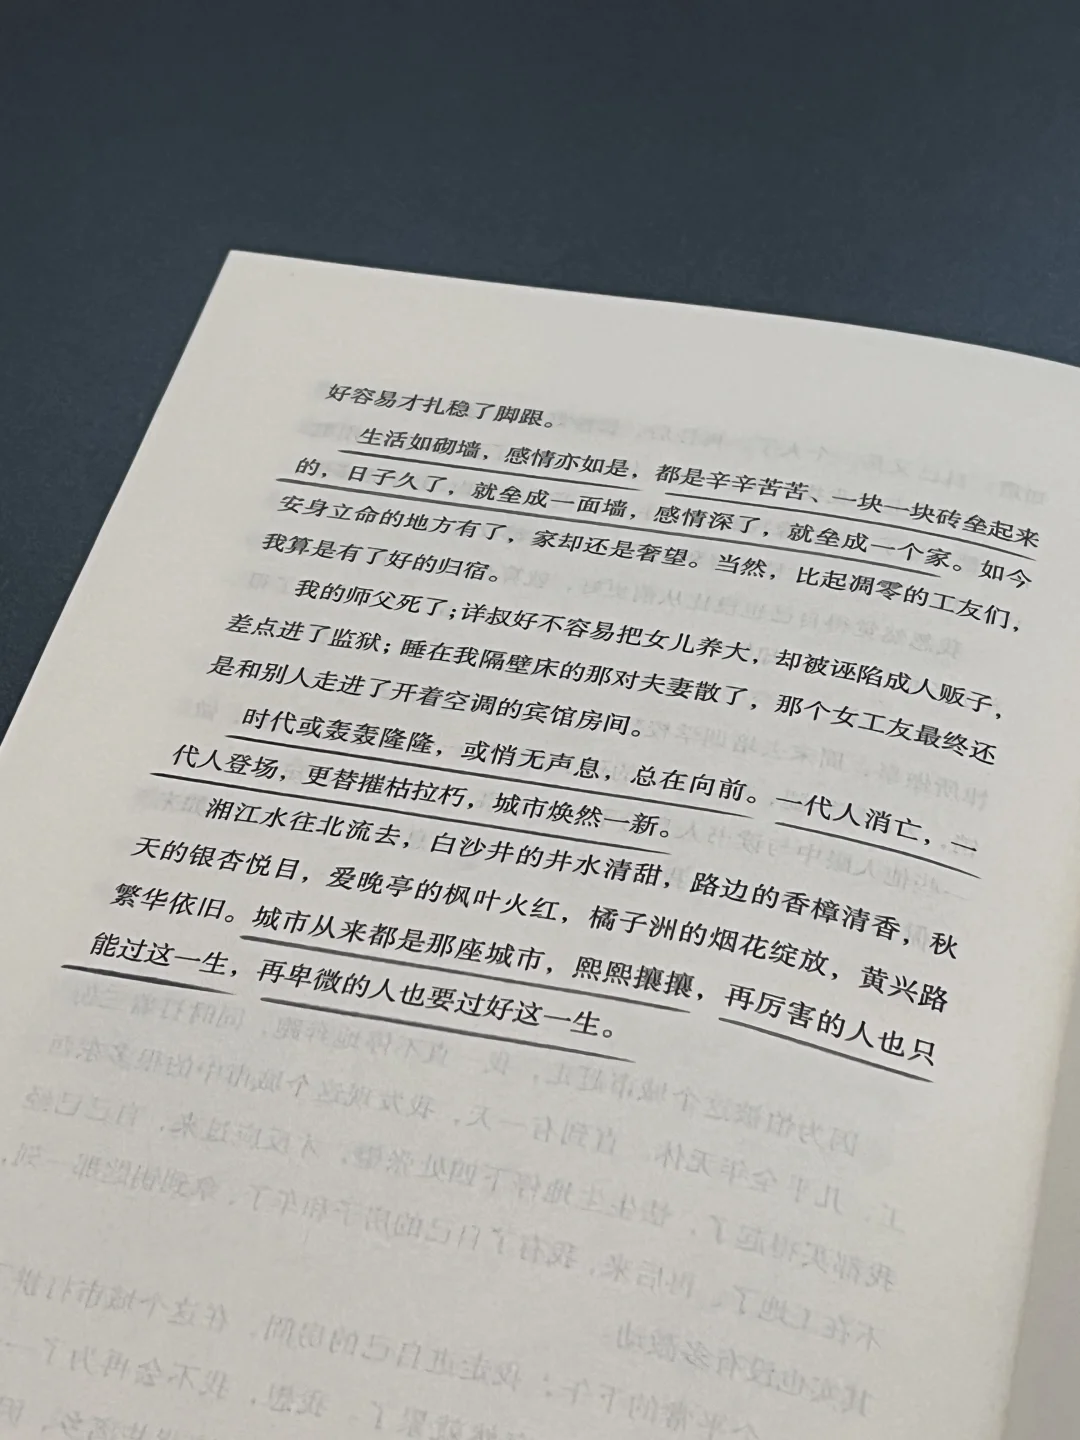 好容易才扎稳了脚跟。
生活如砌墙，感情亦如是，都是辛辛苦苦、一块一块砖垒起来
的，日子久了，就垒成一面墙，感情深了，就垒成一个家。如今
安身立命的地方有了，家却还是奢望。当然，比起凋零的工友们，
我算是有了好的归宿。
我的师父死了；详叔好不容易把女儿养大，却被诬陷成人贩子，
差点进了监狱；睡在我隔壁床的那对夫妻散了，那个女工友最终还
是和别人走进了开着空调的宾馆房间。
时代或轰轰隆隆，或悄无声息，总在向前。一代人消亡，一
代人登场，更替摧枯拉朽，城市焕然一新。
湘江水往北流去，白沙井的井水清甜，路边的香樟清香，秋
天的银杏悦目，爱晚亭的枫叶火红，橘子洲的烟花绽放，黄兴路
繁华依旧。城市从来都是那座城市，熙熙攘攘，再厉害的人也只
能过这一生，再卑微的人也要过好这一生。